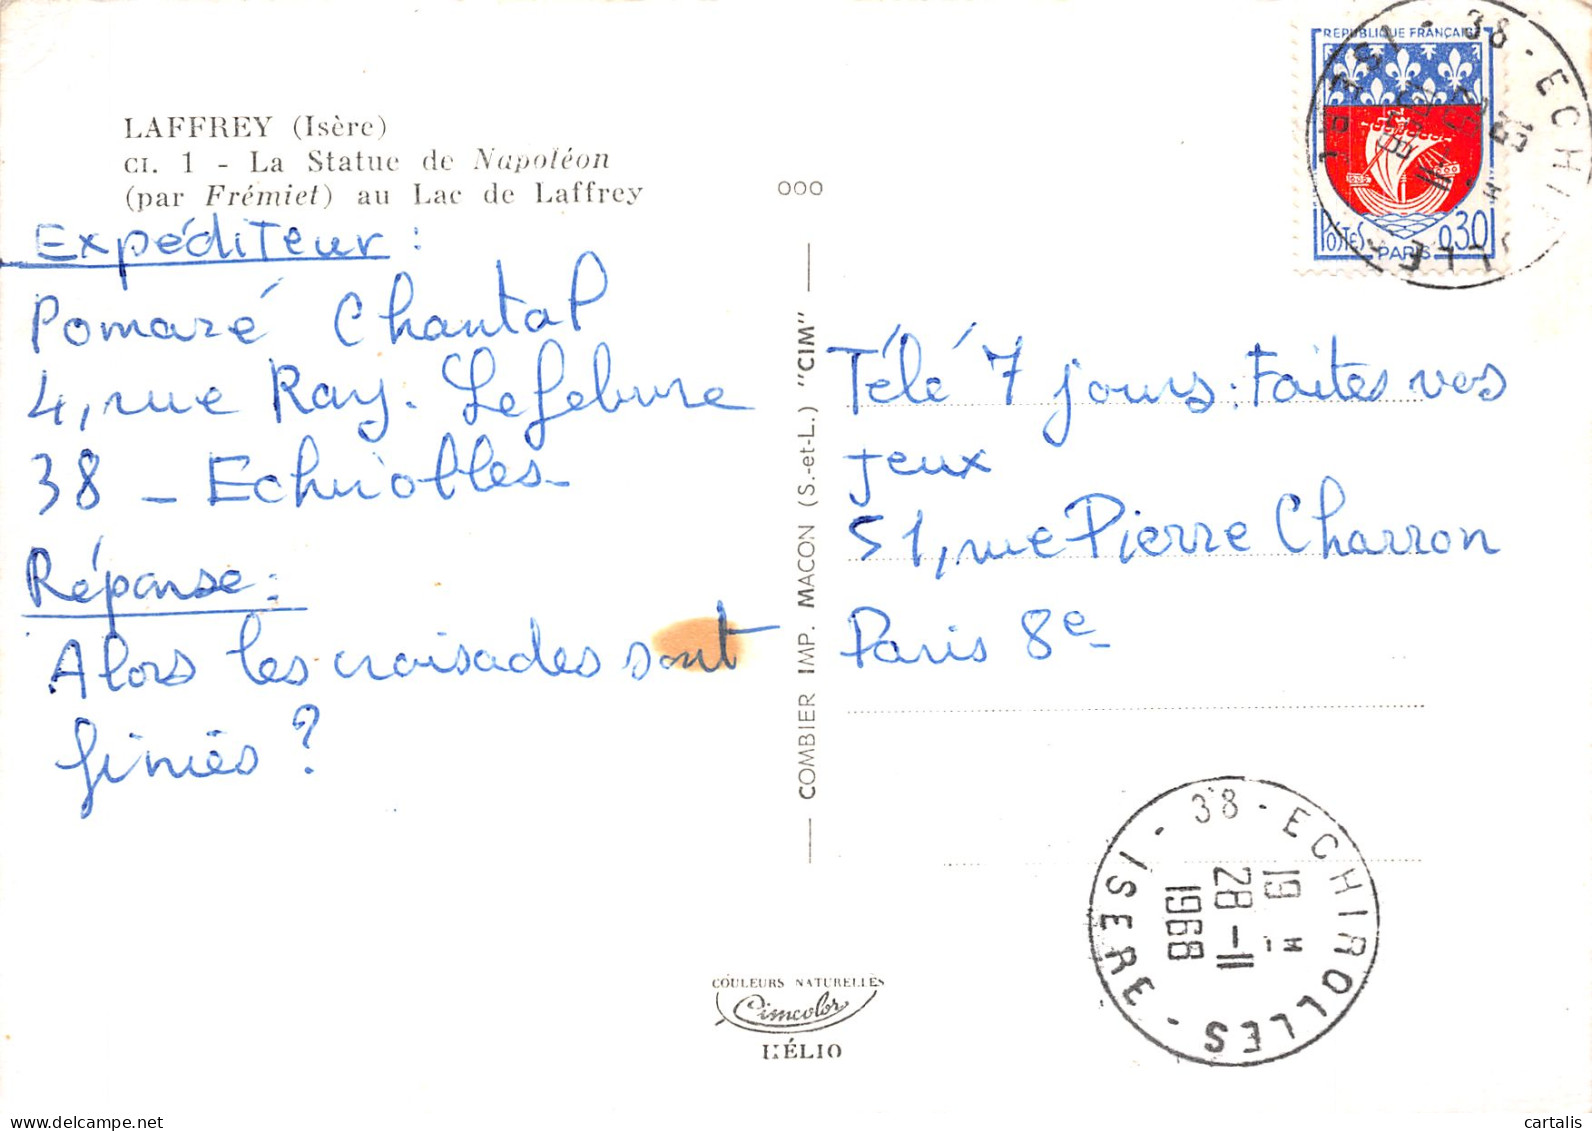 LAFFREY (Isère)
CI. 1 - La Statue de Napoléon
(par Frémiet) au Lac de Laffrey
Expéditeur :
Pomaré Chantal
4, rue Ray. Lefebvre
38 - Echirolles -
Réponse :
Alors les croisades sont
finies ?
000
COMBIER IMP. MACON (S.-et-L.) "CIM"
REPUBLIQUE FRANÇAISE
POSTES 0,30
PARIS
38 - ECHIROLLES - ISERE
Télé 7 jours. Faites vos
jeux
51, rue Pierre Charron
Paris 8e
38 - ECHIROLLES - ISERE -
19 H
28 - 11
1968
COULEURS NATURELLES
Cimcolor
HÉLIO
www.delcampe.net
cartalis